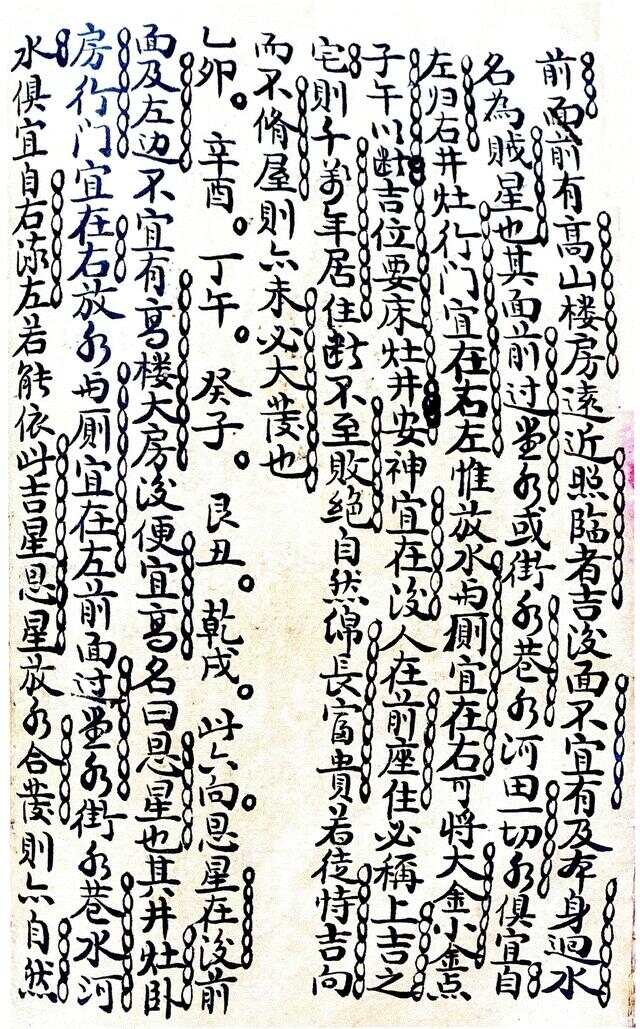 前面前有高山楼房遠近照臨者吉後面不宜有及本身過水
名為賊星也其面前过堂水或街水巷水河田一切水俱宜自
左归右井灶行门宜在右左惟放水与厠宜在右可将大金小金点
子午以断吉位要床灶井安神宜在後人在前座住必稱上吉之
宅則千萬年居住断不至敗绝自然绵長富貴若徒恃吉向
而不脩屋則亦未必大發也
乙卯。辛酉。丁午。癸子。艮丑。乾戌。此六向恩星在後前
面及左边不宜有高楼大房後便宜高名曰恩星也其井灶卧
房行门宜在右放水与厠宜在左前面过堂水街水巷水河
水俱宜自右流左若能依此吉星恩星放水合發則亦自然